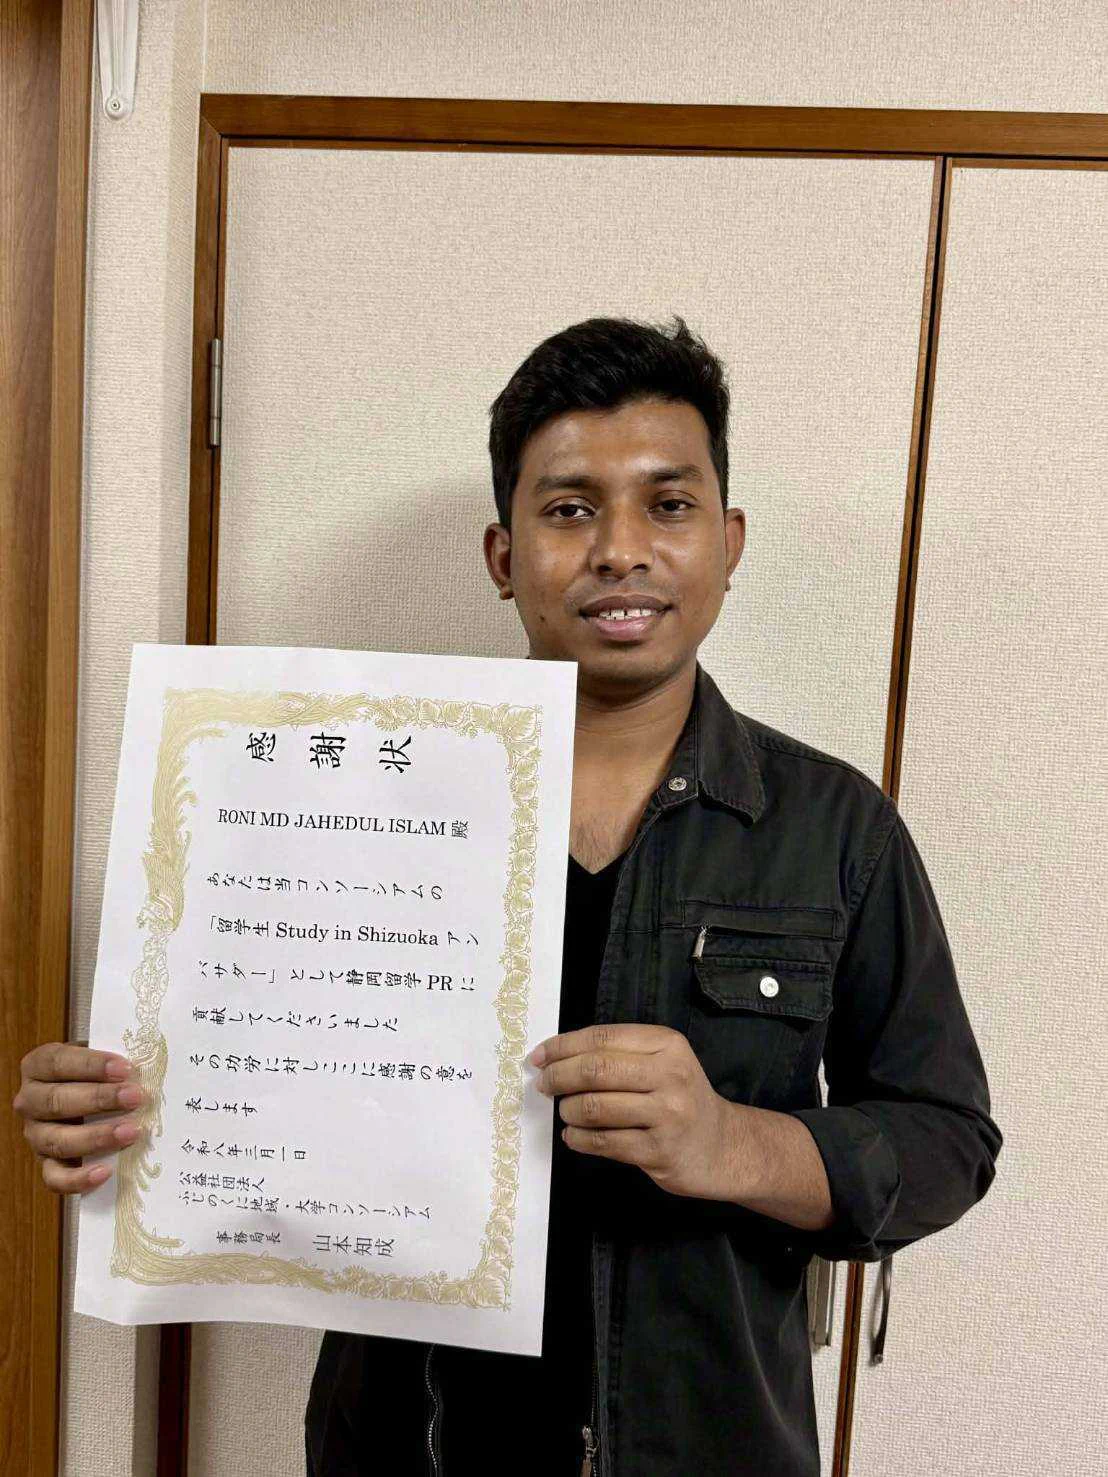 感謝状
RONI MD JAHEDUL ISLAM 殿
あなたは当コンソーシアムの
「留学生 Study in Shizuoka アン
バサダー」として静岡留学 PR に
貢献してくださいました
その功労に対しここに感謝の意を
表します
令和八年三月一日
公益社団法人
ふじのくに地域・大学コンソーシアム
事務局長 山本知成